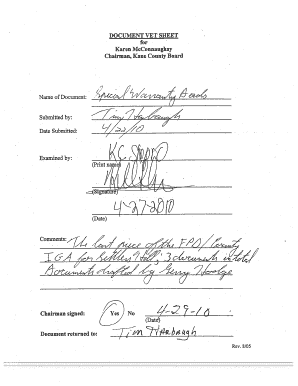 DOCUMENT VET SHEET
for
Karen McConnaughay
Chairman, Kane County Board
Name of Document: Special Warranty Deeds
Submitted by: Tim Harbaugh
Date Submitted: 4/22/10
Examined by: K.C.
(Print name)
(Signature)
4-27-2010
(Date)
Comments: The last piece of the FPD/County
IGA for Settlers Hill; 3 documents in total
Documents drafted by Gerry
Chairman signed: Yes No 4-29-10
(Date)
Document returned to: Tim Harbaugh
Rev. 8/05